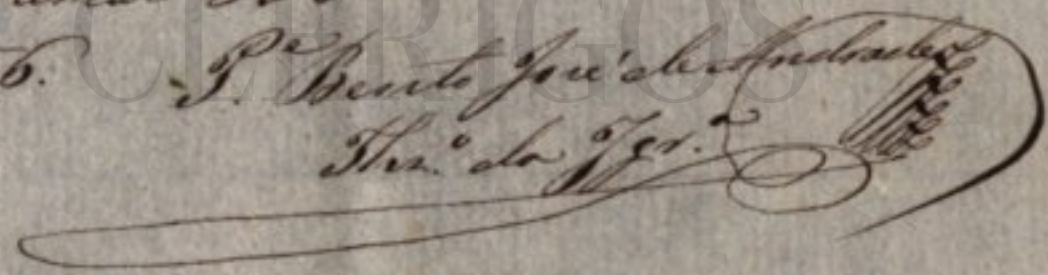 CLERIGOS
6. P.e Bento José de Andrade
Thez.o da Igr.a